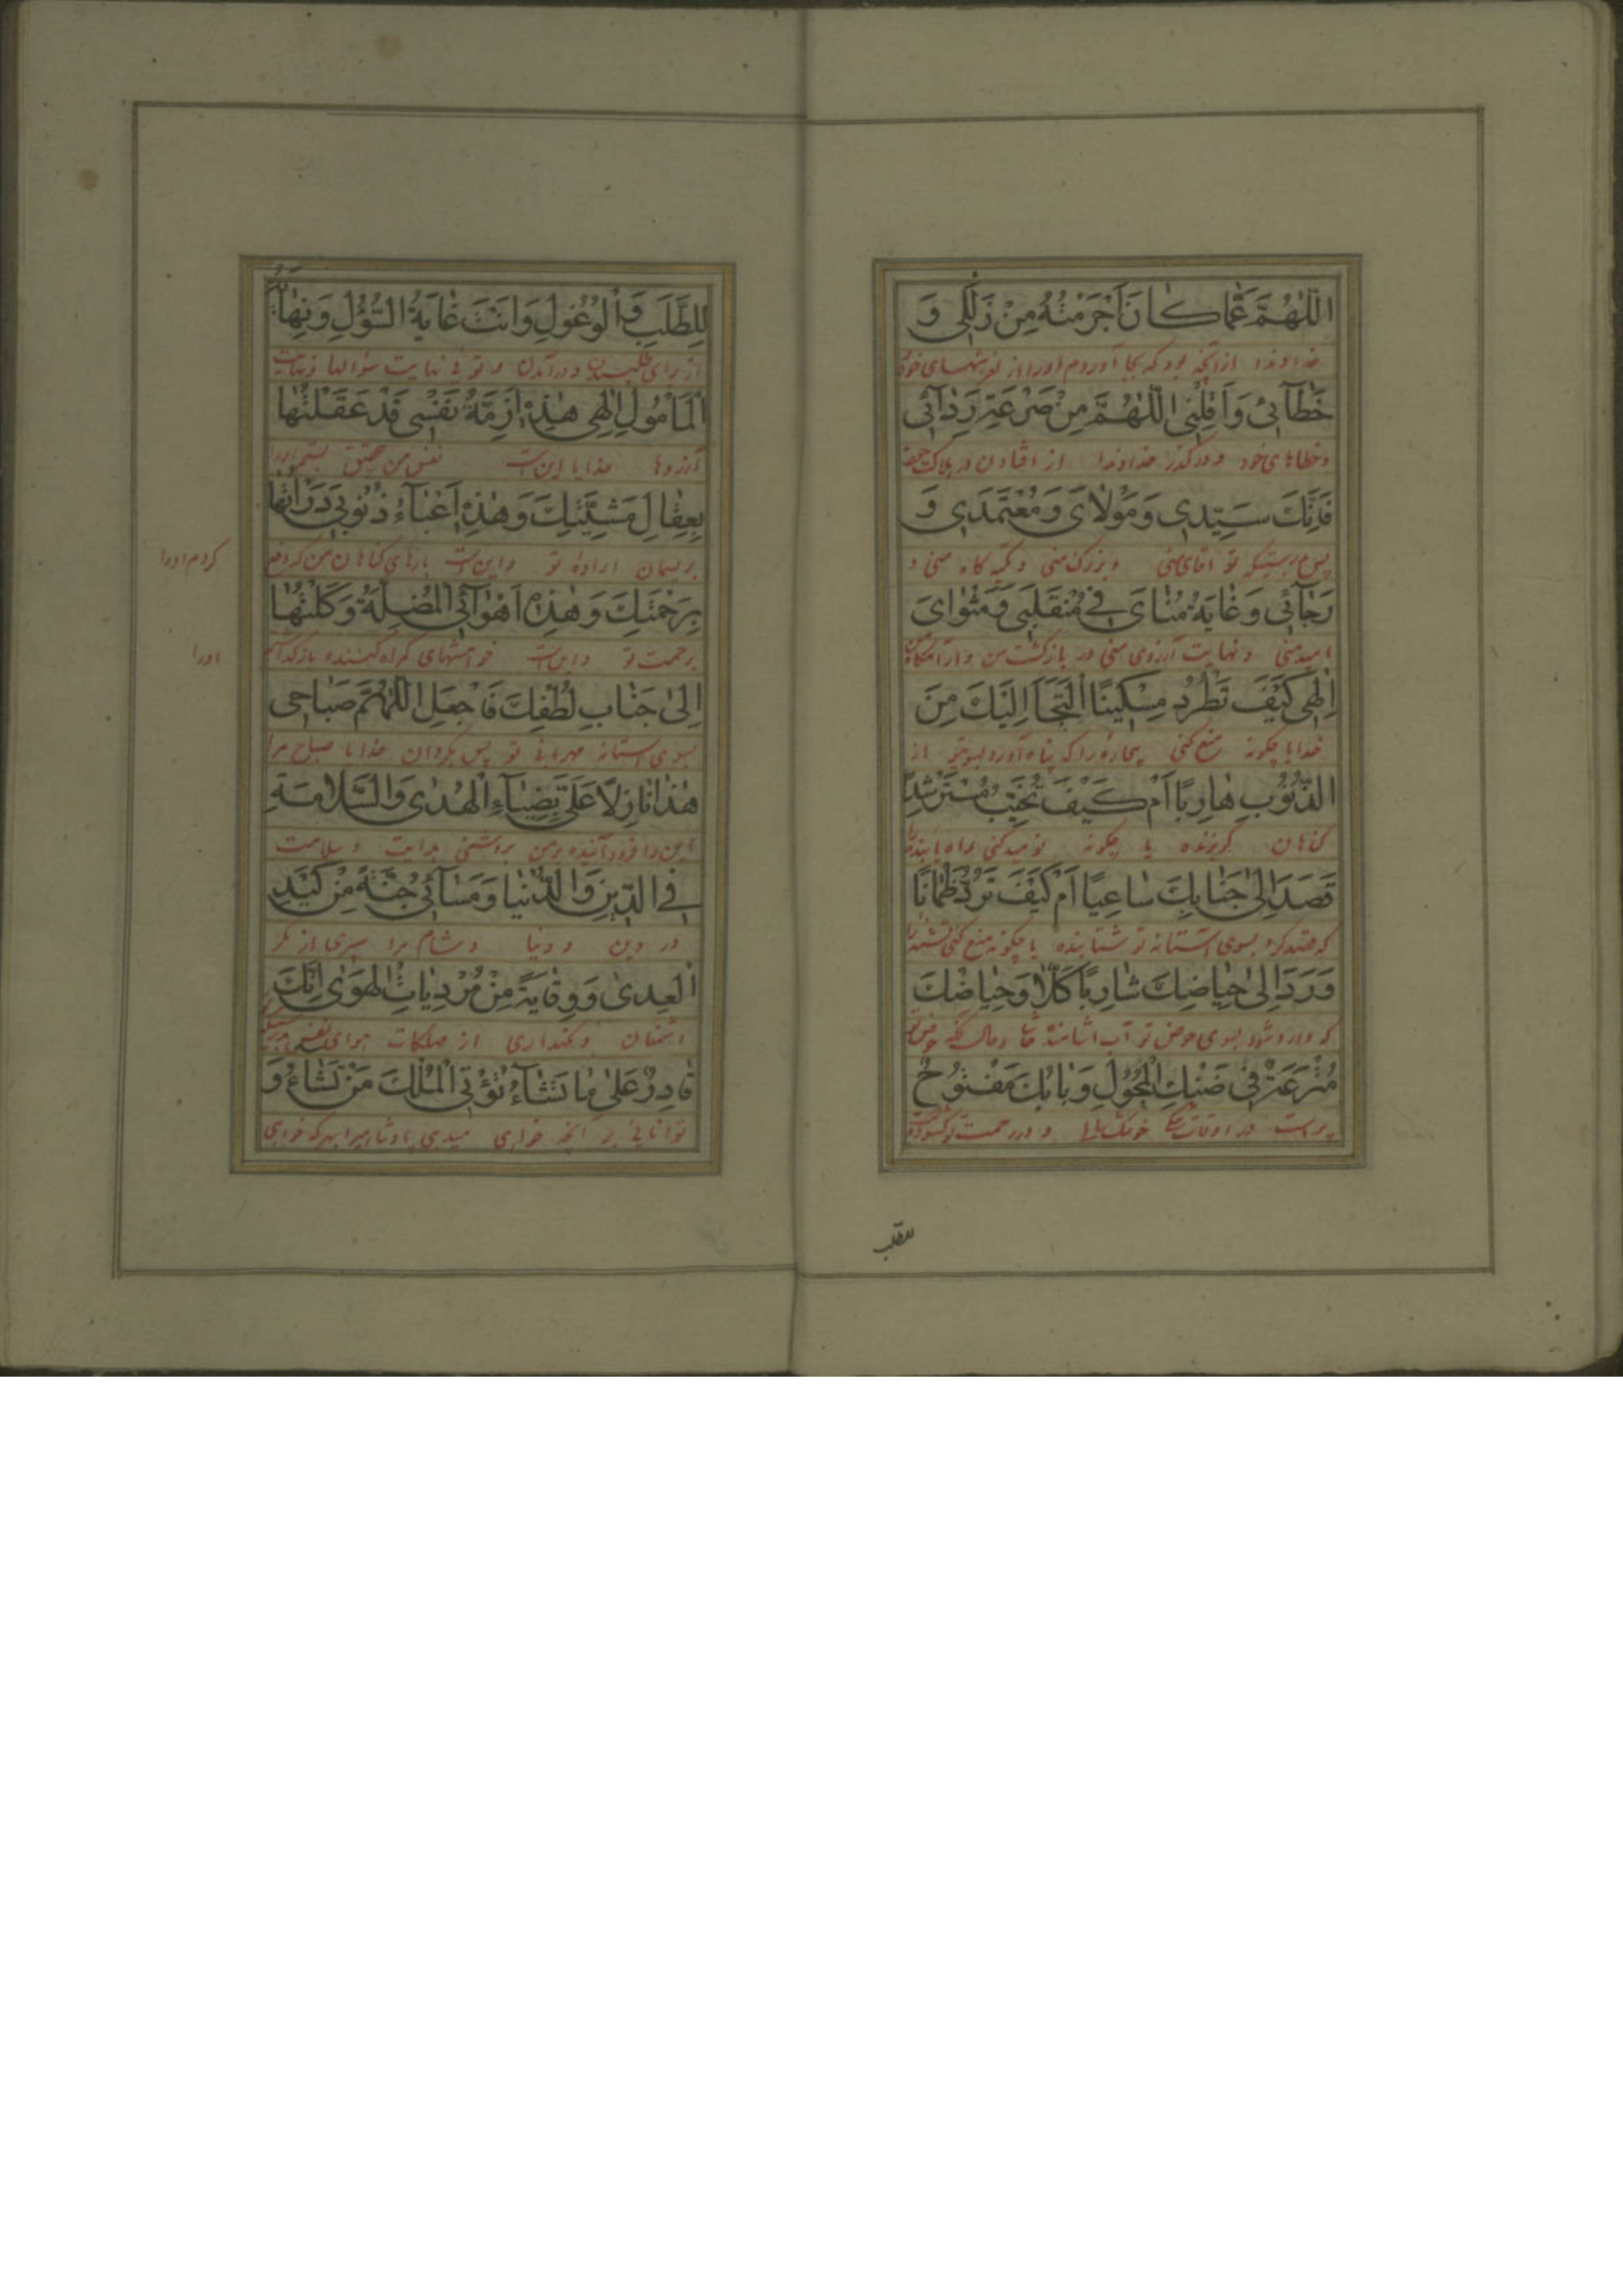 اللّٰهُمَّ عَمَّا كَانَ اَجْرَمْتُهُ مِنْ زَلَلِي وَ
خداوندا از آنچه بود که بجا آوردم اورا از لغزشهای خود
خَطَآئِي وَاَقِلْنِي اللّٰهُمَّ مِنْ صَرْعَةِ رَدَآئِي
وخطاهای خود و درگذر خداوندا از افتادن در هلاکت
فَاِنَّكَ سَيِّدِي وَمَوْلاىَ وَمُعْتَمَدِي وَ
پس بدرستیکه تو اقای منی و بزرک منی و تکیه کاه منی و
رَجَآئِي وَغَايَةُ مُنَاىَ فِي مُنْقَلَبِي وَمَثْوَاىَ
امید منی و نهایت آرزوی منی در بازکشت من و
اِلٰهِي كَيْفَ تَطْرُدُ مِسْكِينًا الْتَجَاَ اِلَيْكَ مِنَ
خدایا چکونه منع کنی بیچاره را که پناه آورد بسوی تو از
الذُّنُوبِ هَارِبًا اَمْ كَيْفَ تُخَيِّبُ مُسْتَرْشِدًا
کناهان کریزنده یا چکونه نومید کنی راه یابنده را
قَصَدَ اِلىٰ جَنَابِكَ سَاعِيًا اَمْ كَيْفَ تَرُدُّ ظَمْاٰنًا
که قصد کرد بسوی آستانه تو شتابنده یا چکونه منع کنی تشنه را
وَرَدَ اِلىٰ حِيَاضِكَ شَارِبًا كَلّا وَحِيَاضُكَ
که وارد شود بسوی حوض تو آب اشامنده حاشا وحال آنکه
مُتْرَعَةٌ فِي ضَنْكِ الْمُحُولِ وَبَابُكَ مَفْتُوحٌ
پر است در اوقات خشک و در رحمت تو
للطلب
لِلطَّلَبِ وَالْوُغُولِ وَاَنْتَ غَايَةُ السُّؤُلِ وَنِهَايَةُ
از برای طلبیدن و درآمدن و توئی نهایت سؤالها ونهایت
الْمَأْمُولِ اِلٰهِي هٰذِهِ اَزِمَّةُ نَفْسِي قَدْ عَقَلْتُهَا
آرزوها خدایا این است نفس من بستم اورا
بِعِقَالِ مَشِيَّتِكَ وَهٰذِهِ اَعْبَآءُ ذُنُوبِي دَرَاْتُهَا
بریسمان اراده تو واین است بارهای کناهان من که دفع
کردم اورا
بِرَحْمَتِكَ وَهٰذِهِ اَهْوَآئِي الْمُضِلَّةُ وَكَلْتُهَا
برحمت تو واین است خواهشهای کمراه کننده باز کذاشتم
اورا
اِلىٰ جَنَابِ لُطْفِكَ فَاجْعَلِ اللّٰهُمَّ صَبَاحِي
بسوی استانه مهربانی تو پس بکردان خدایا صباح مرا
هٰذَا نَازِلاً عَلَيَّ بِضِيَآءِ الْهُدٰى وَالسَّلامَةِ
این را فرود آینده برمن بروشنی هدایت و سلامت
فِي الدِّينِ وَالدُّنْيَا وَمَسَآئِي جُنَّةً مِنْ كَيْدِ
در دین و دنیا و شام مرا سپری از مکر
الْعِدىٰ وَوِقَايَةً مِنْ مُرْدِيَاتِ الْهَوىٰ اِنَّكَ
دشمنان و نکهداری از مهلکات هوای نفس
قَادِرٌ عَلىٰ مَا تَشَآءُ تُؤْتِي الْمُلْكَ مَنْ تَشَاءُ وَ
توانائی بر آنچه خواهی میدهی پادشاهی را بهر که خواهی